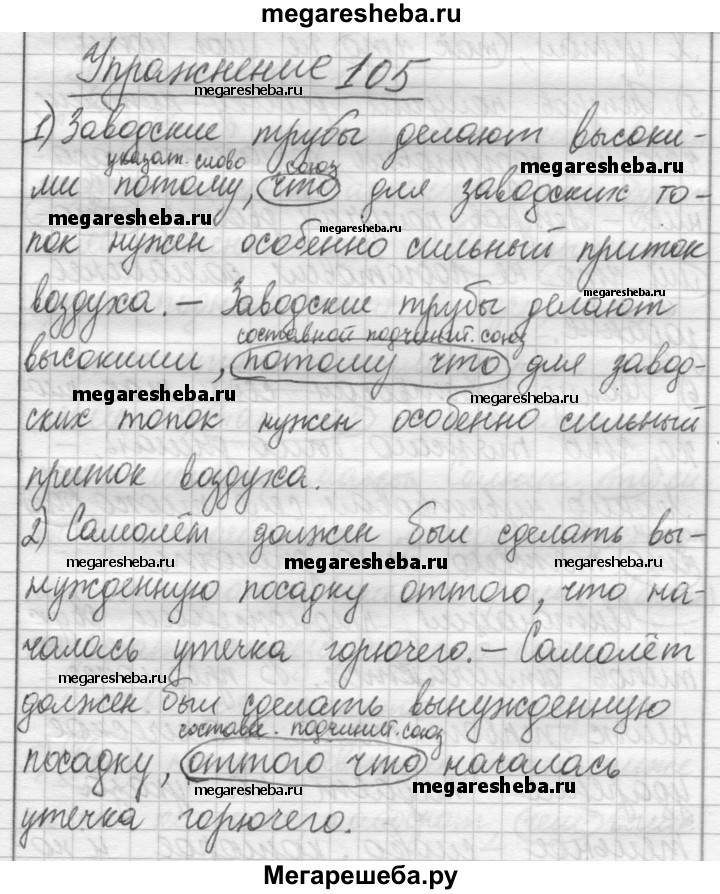 megaresheba.ru
Упражнение 105
megaresheba.ru
1) Заводские трубы делают высоки-
указат. слово союз
megaresheba.ru
ми потому, что для заводских то-
megaresheba.ru
megaresheba.ru
пок нужен особенно сильный приток
megaresheba.ru
воздуха. – Заводские трубы делают
составной подчинит. союз
высокими, потому что для завод-
megaresheba.ru
megaresheba.ru
ских топок нужен особенно сильный
приток воздуха.
2) Самолёт должен был сделать вы-
megaresheba.ru megaresheba.ru megaresheba.ru
нужденную посадку оттого, что на-
чалась утечка горючего. – Самолёт
megaresheba.ru
должен был сделать вынужденную
составн. подчинит. союз
посадку, оттого что началась
megaresheba.ru megaresheba.ru
утечка горючего.
Мегарешеба.ру